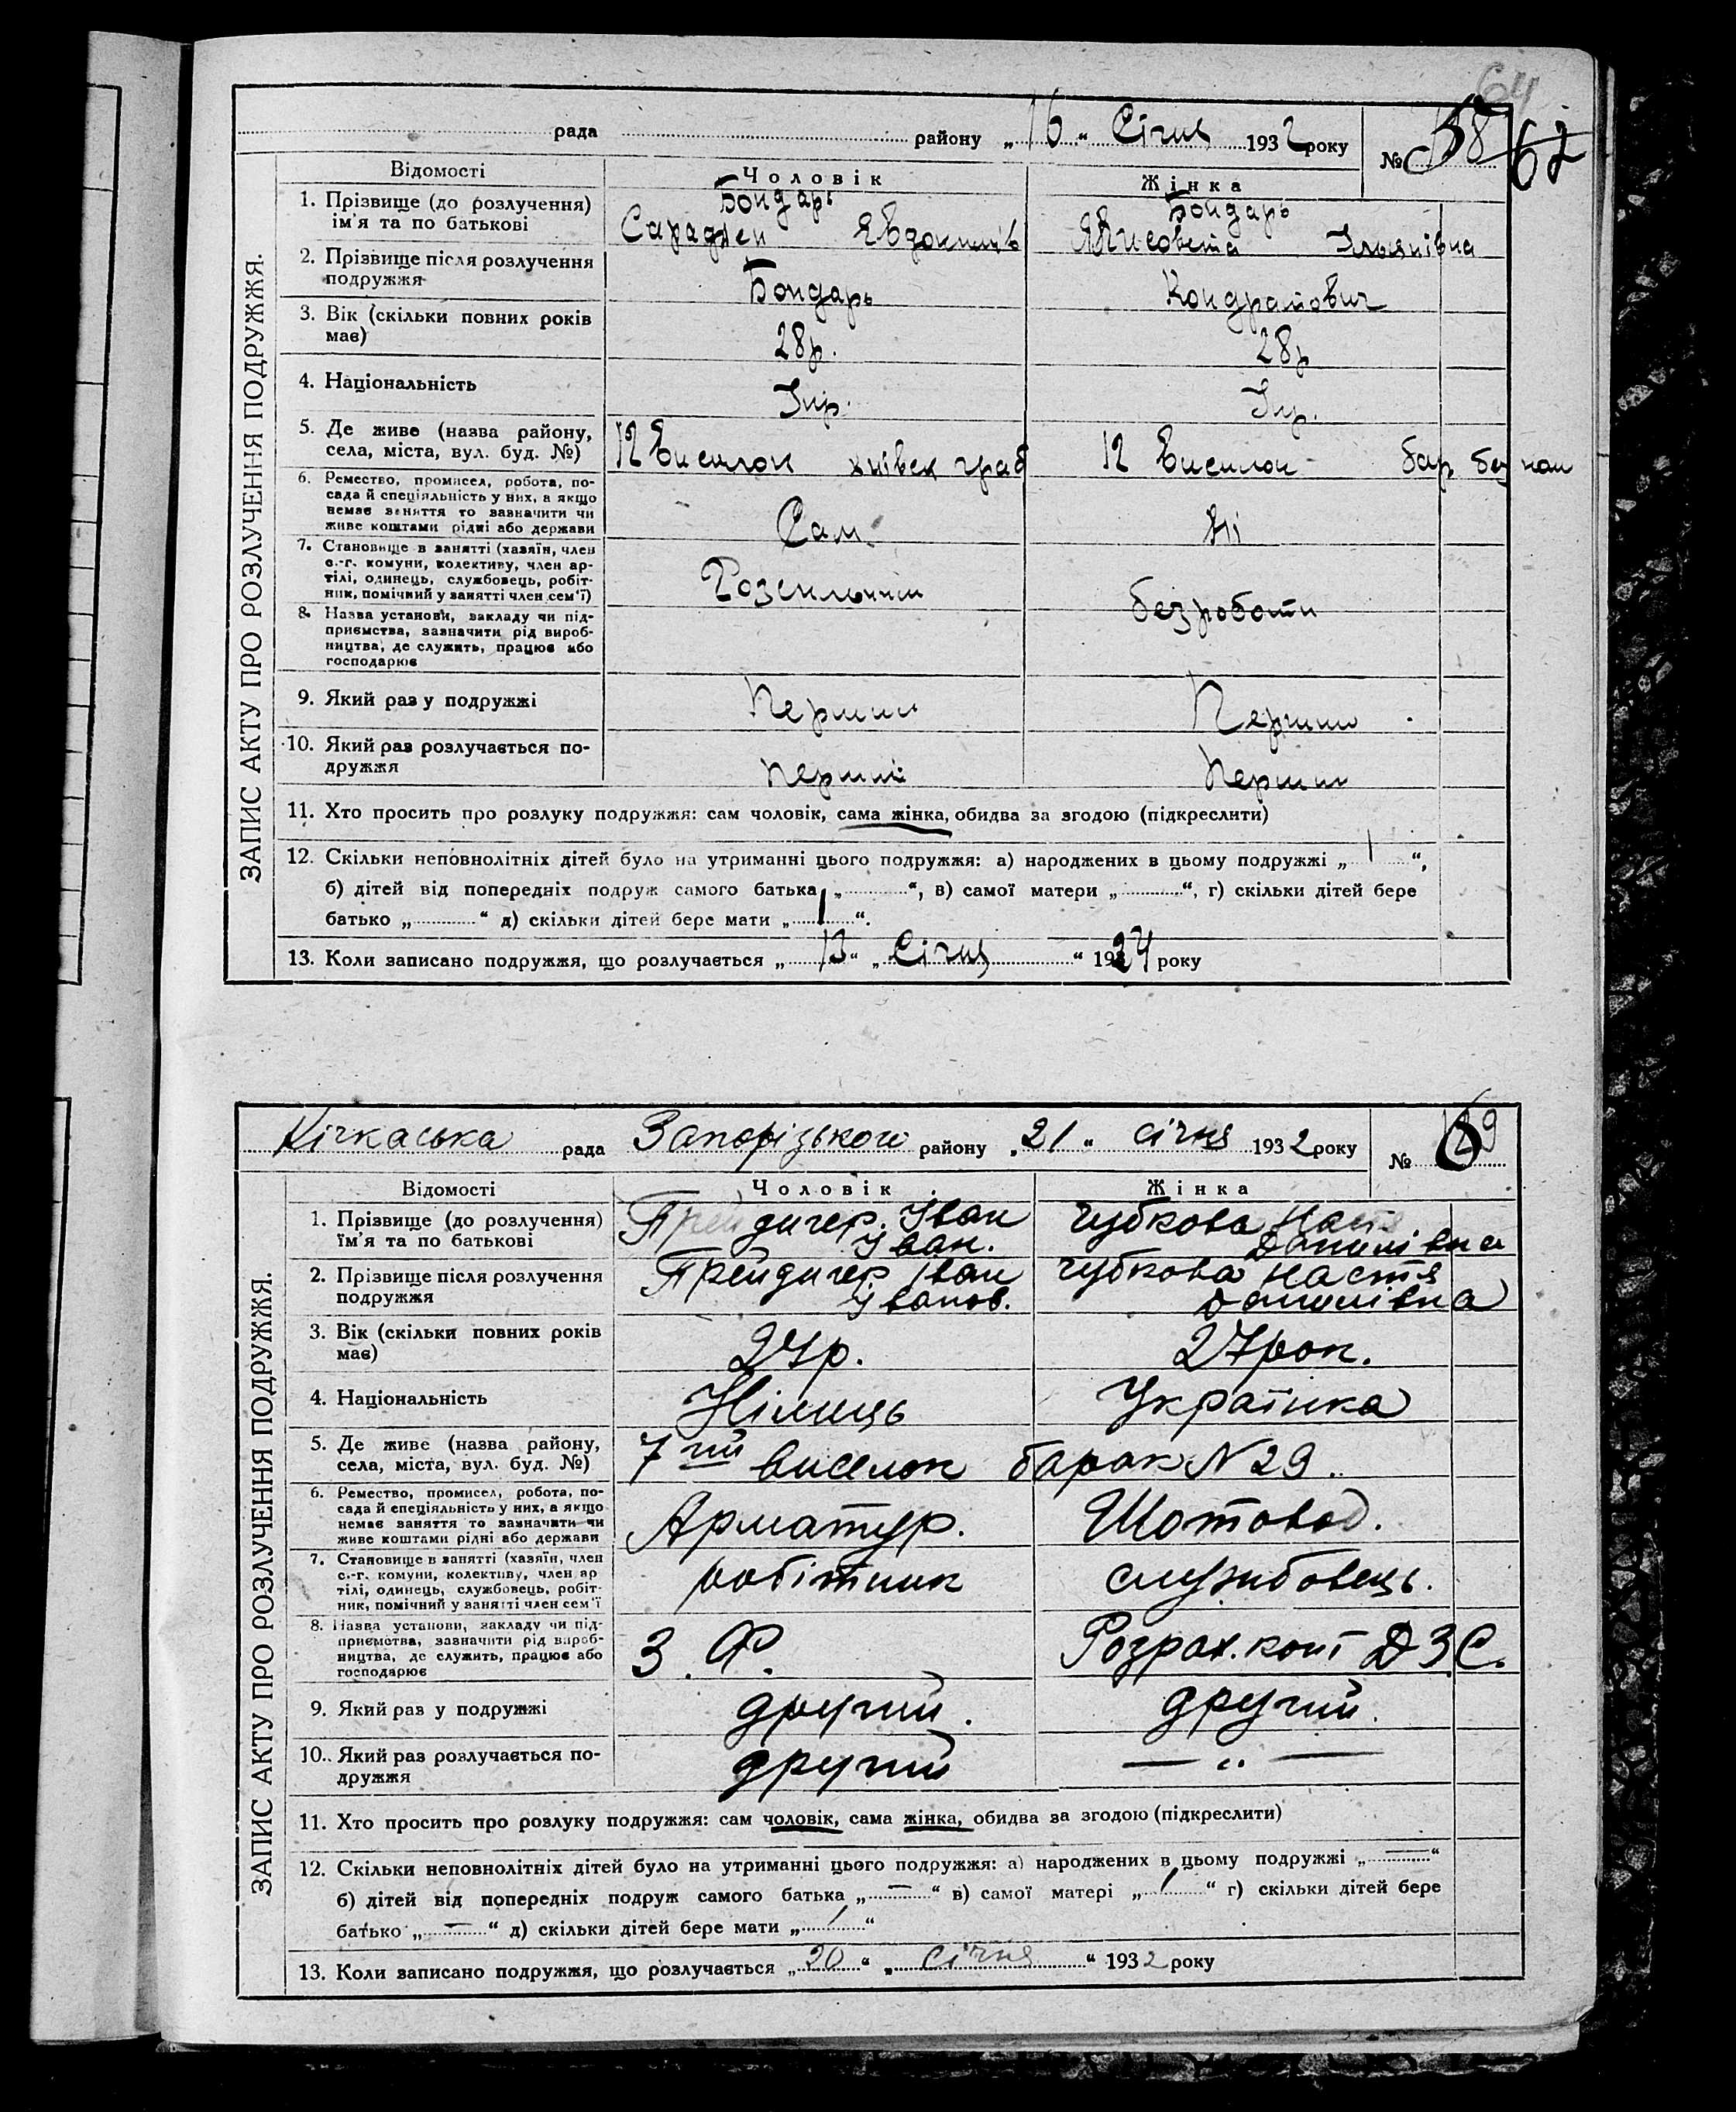 64
рада района „16 “ Січня 1932 року № 58 62
ЗАПИС АКТУ ПРО РОЗЛУЧЕННЯ ПОДРУЖЖЯ.
Відомості Чоловік Жінка
1. Прізвище (до розлучення) Бондарь Бондарь
ім'я та по батькові
2. Прізвище після розлучення
подружжя Бондарь Кондратович
3. Вік (скільки повних років
має) 28р. 28р
4. Національність
5. Де живе (назва району,
села, міста, вул. буд. №) 12 Виселок 12 Виселок
6. Ремество, промисел, робота, по-
сада й спеціяльність у них, а якщо
немає заняття то зазначити чи
живе коштами рідні або держави Сам. Ні
7. Становище в занятті (хазяїн, член
с.-г. комуни, колективу, член ар-
тілі, одинець, службовець, робіт-
ник, помічний у занятті член сем'ї) безроботн
8. Назва установи, закладу чи під-
приємства, зазначити рід вироб-
ництва, де служить, працює або
господарює
9. Який раз у подружжі Перший Перший
10. Який раз розлучається по-
дружжя Перший Перший
11. Хто просить про розлуку подружжя: сам чоловік, сама жінка, обидва за згодою (підкреслити)
12. Скільки неповнолітніх дітей було на утриманні цього подружжя: а) народжених в цьому подружжі „ 1 “,
б) дітей від попередніх подруж самого батька „ “, в) самої матери „ “, г) скільки дітей бере
батько „ “ д) скільки дітей бере мати „ 1 “.
13. Коли записано подружжя, що розлучається „ 13 “ „ Січня “ 1924 року
Кічкаська рада Запорізького району „ 21 “ січня 1932 року №
ЗАПИС АКТУ ПРО РОЗЛУЧЕННЯ ПОДРУЖЖЯ.
Відомості Чоловік Жінка
1. Прізвище (до розлучення) Трейдигер. Іван Чубкова Настя
їм'я та по батькові Іван. Данилівна
2. Прізвище після розлучення Трейдигер Іван Чубкова Настя
подружжя Іванов. Данилівна
3. Вік (скільки повних років
має) 27р. 27рок.
4. Національність Німець Українка
5. Де живе (назва району,
села, міста, вул. буд. №) 7ий виселок барак N 29.
6. Ремество, промисел, робота, по-
сада й спеціяльність у них, а якщо
немає заняття то зазначити чи
живе коштами рідні або держави Арматур. Шотовод.
7. Становище в занятті (хазяїн, член
с.-г. комуни, колективу, член ар
тілі, одинець, службовець, робіт-
ник, помічний у занятті член сем'ї робітник службовець.
8. Назва установи, закладу чи під-
приємства, зазначити рід вироб-
ництва, де служить, працює або
господарює З. Ф. Розрах. конт ДЗ.С.
9. Який раз у подружжі другий. другий.
10. Який раз розлучається по-
дружжя другий — „ —
11. Хто просить про розлуку подружжя: сам чоловік, сама жінка, обидва за згодою (підкреслити)
12. Скільки неповнолітніх дітей було на утриманні цього подружжя: а) народжених в цьому подружжі „ — “
б) дітей від попередніх подруж самого батька „ — “ в) самої матері „ 1 “ г) скільки дітей бере
батько „ — “ д) скільки дітей бере мати „ 1 “
13. Коли записано подружжя, що розлучається „ 20 “ „ січня “ 1932 року